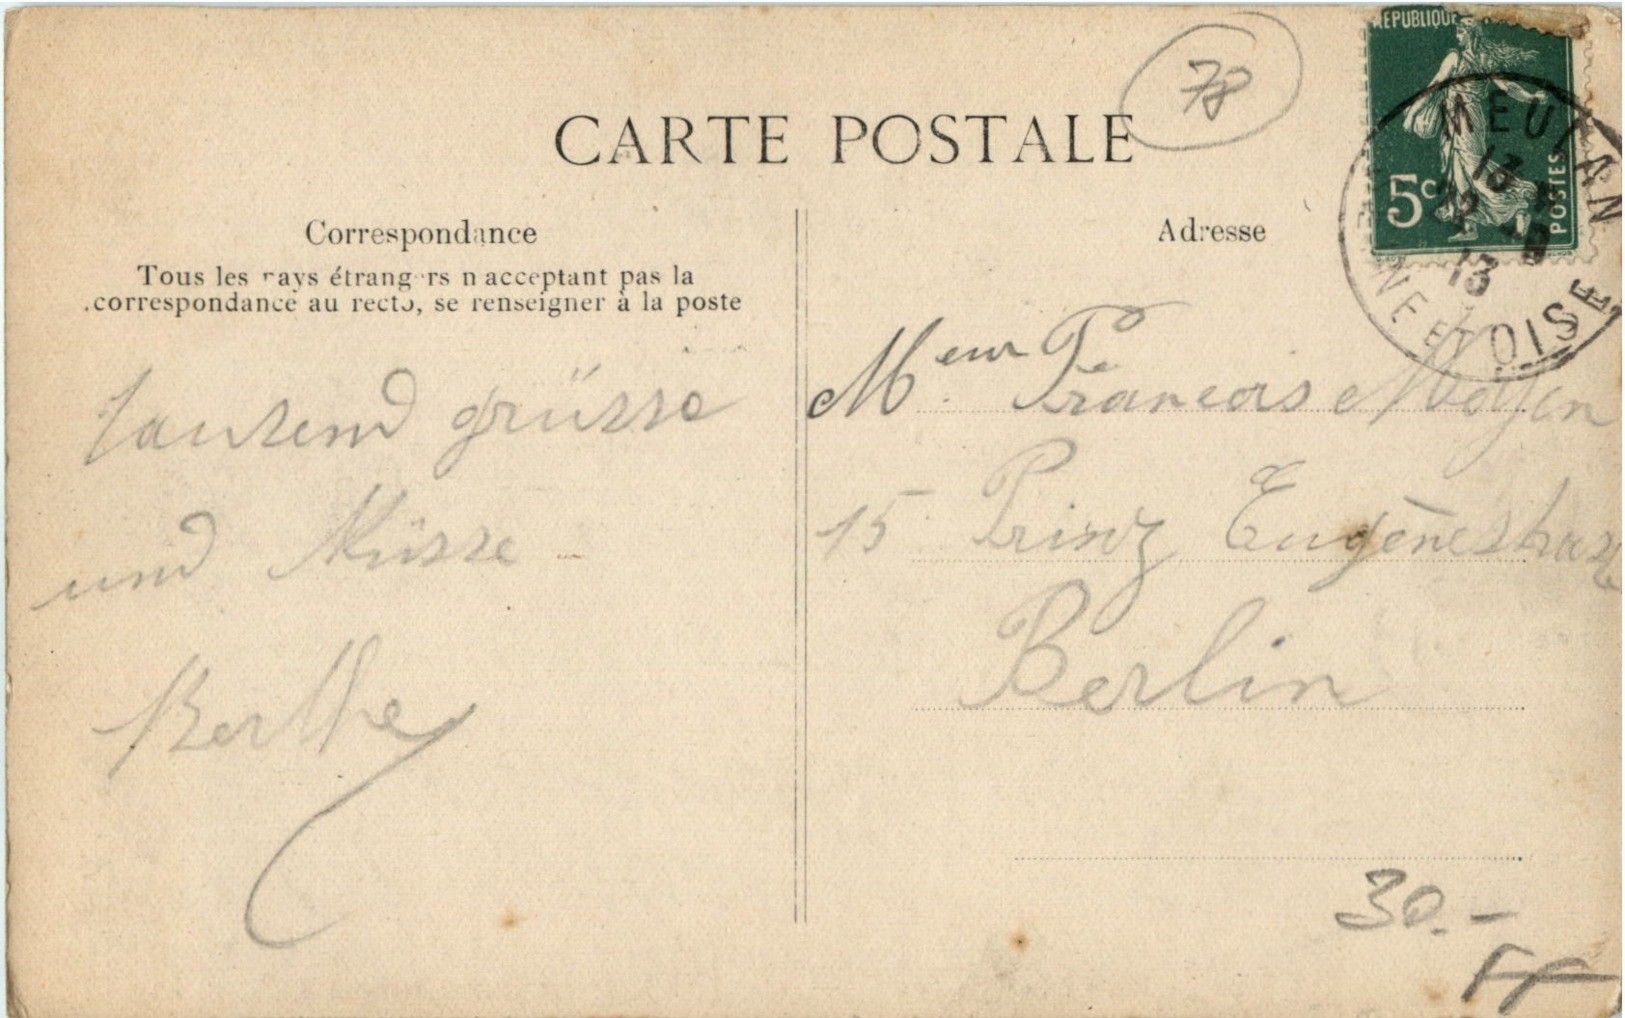 78
CARTE POSTALE
REPUBLIQUE
5c
POSTES
MEULAN
13
22
13
NE ET OISE
Correspondance
Tous les pays étrangers n acceptant pas la
correspondance au recto, se renseigner à la poste
tausend grüsse
und Küsse
Berthe
Adresse
Meur François
15 Prinz Eugènestrasse
Berlin
30.-
FF